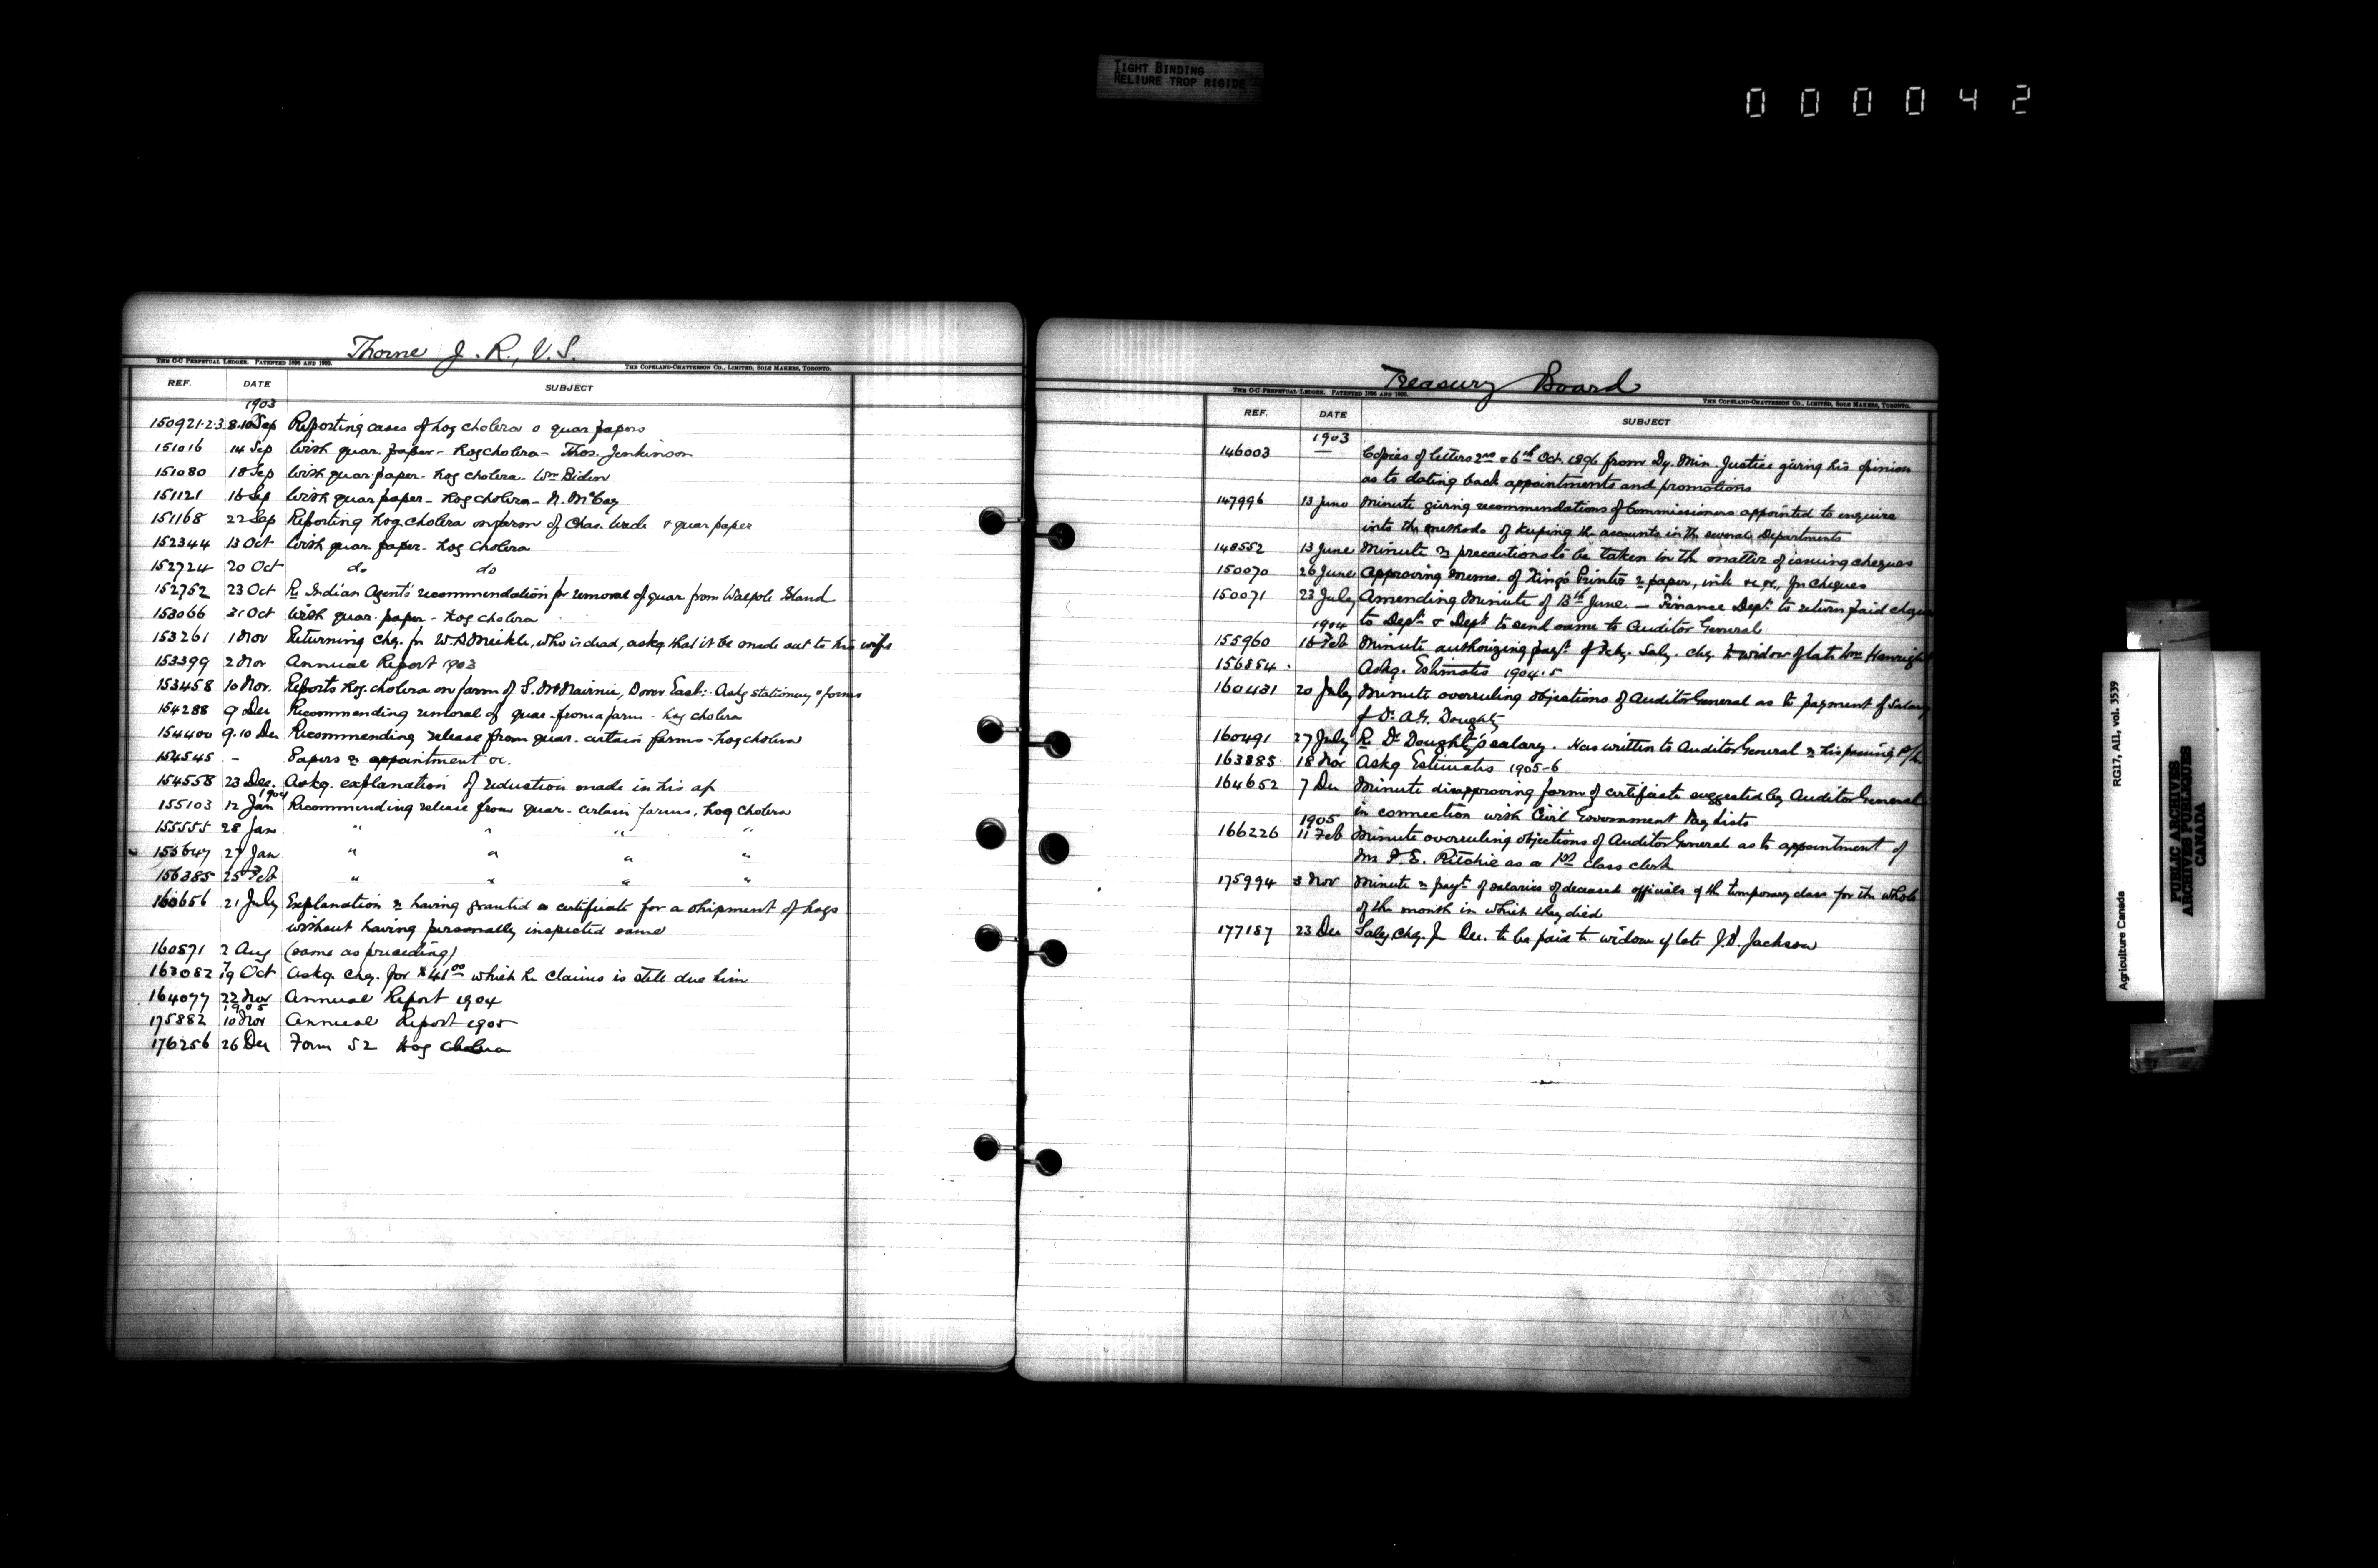 TIGHT BINDING
RELIURE TROP RIGIDE
000042
Thorne J. R., V. S.
THE C-C PERPETUAL LEDGER. PATENTED 1896 AND 1900. THE COPELAND-CHATTERSON CO., LIMITED, SOLE MAKERS, TORONTO.
REF. DATE SUBJECT
1903
150921-2-3 8.10 Sep Reporting cases of hog cholera & quar papers
151016 14 Sep With quar. paper - Hog cholera - Thos. Jenkinson
151080 18 Sep With quar. paper - Hog cholera - Wm Biden
151121 16 Sep With quar paper - Hog cholera - N. McCoy
151168 22 Sep Reporting Hog cholera on farm of Chas. & quar paper
152344 13 Oct With quar. paper - Hog Cholera
152724 20 Oct do do
152752 23 Oct Re Indian Agent's recommendation for removal of quar from Walpole Island
153066 31 Oct With quar. paper - Hog cholera
153261 1 Nov Returning chq. for W. D Meikle, who is dead, askg. that it be made out to his wife
153399 2 Nov Annual Report 1903
153458 10 Nov. Reports Hog. cholera on farm of S. Dover East: Askg stationery & forms
154288 9 Dec Recommending removal of quar. from a farm - hog cholera
154400 9.10 Dec Recommending release from quar. certain farms - hog cholera
154545 - Papers re appointment &c.
154558 23 Dec. Askg. explanation of reduction made in his a/c
1904
155103 12 Jan Recommending release from quar. certain farms. Hog cholera
155555 28 Jan " " " "
155647 27 Jan " " " "
156385 25 Feb " " " "
160656 21 July Explanation re having granted a certificate for a shipment of hogs
without having personally inspected same
160871 2 Aug (same as preceding)
163082 19 Oct Askg. chq. for $41.00 which he claims is still due him
164077 22 Nov Annual Report 1904
1905
175882 10 Nov Annual Report 1905
176256 26 Dec Form 52 Hog Cholera
Treasury Board
THE C-C PERPETUAL LEDGER. PATENTED 1896 AND 1900. THE COPELAND-CHATTERSON CO., LIMITED, SOLE MAKERS, TORONTO.
REF. DATE SUBJECT
1903
146003 — Copies of letters 2nd & 6th Oct. 1896 from Dy. Min. Justice giving his opinion
as to dating back appointments and promotions
147996 13 June Minute giving recommendations of Commissioners appointed to enquire
into the methods of keeping the accounts in the several Departments
148552 13 June Minute re precautions to be taken in the matter of issuing cheques
150070 26 June Approving memo. of King's Printer re paper, ink &c &c, for cheques
150071 23 July Amending Minute of 13th June. — Finance Dept. to return paid cheques
to Depts & Dept to send same to Auditor General
1904
155960 16 Feb Minute authorizing payt. of Feby. Saly. chq to widow of late Wm
156854 . Askg. Estimates 1904-5
160431 20 July Minute overruling objections of Auditor General as to payment of Salary
of Dr. A. G. Doughty
160491 27 July Re Dr Doughty's salary. Has written to Auditor General re his passing
163885 18 Nov Askg Estimates 1905-6
164652 7 Dec Minute disapproving form of certificate suggested by Auditor General
in connection with Civil Government Pay lists
1905
166226 11 Feb Minute overruling objections of Auditor General as to appointment of
Mr. F. E. Ritchie as a 1st class clerk
175994 3 Nov Minute re payt. of salaries of deceased officials of the temporary class for the whole
of the month in which they died
177187 23 Dec Saly. chq. for Dec. to be paid to widow of late J. D. Jackson
Agriculture Canada RG17, AII, vol. 3539
PUBLIC ARCHIVES
ARCHIVES PUBLIQUES
CANADA